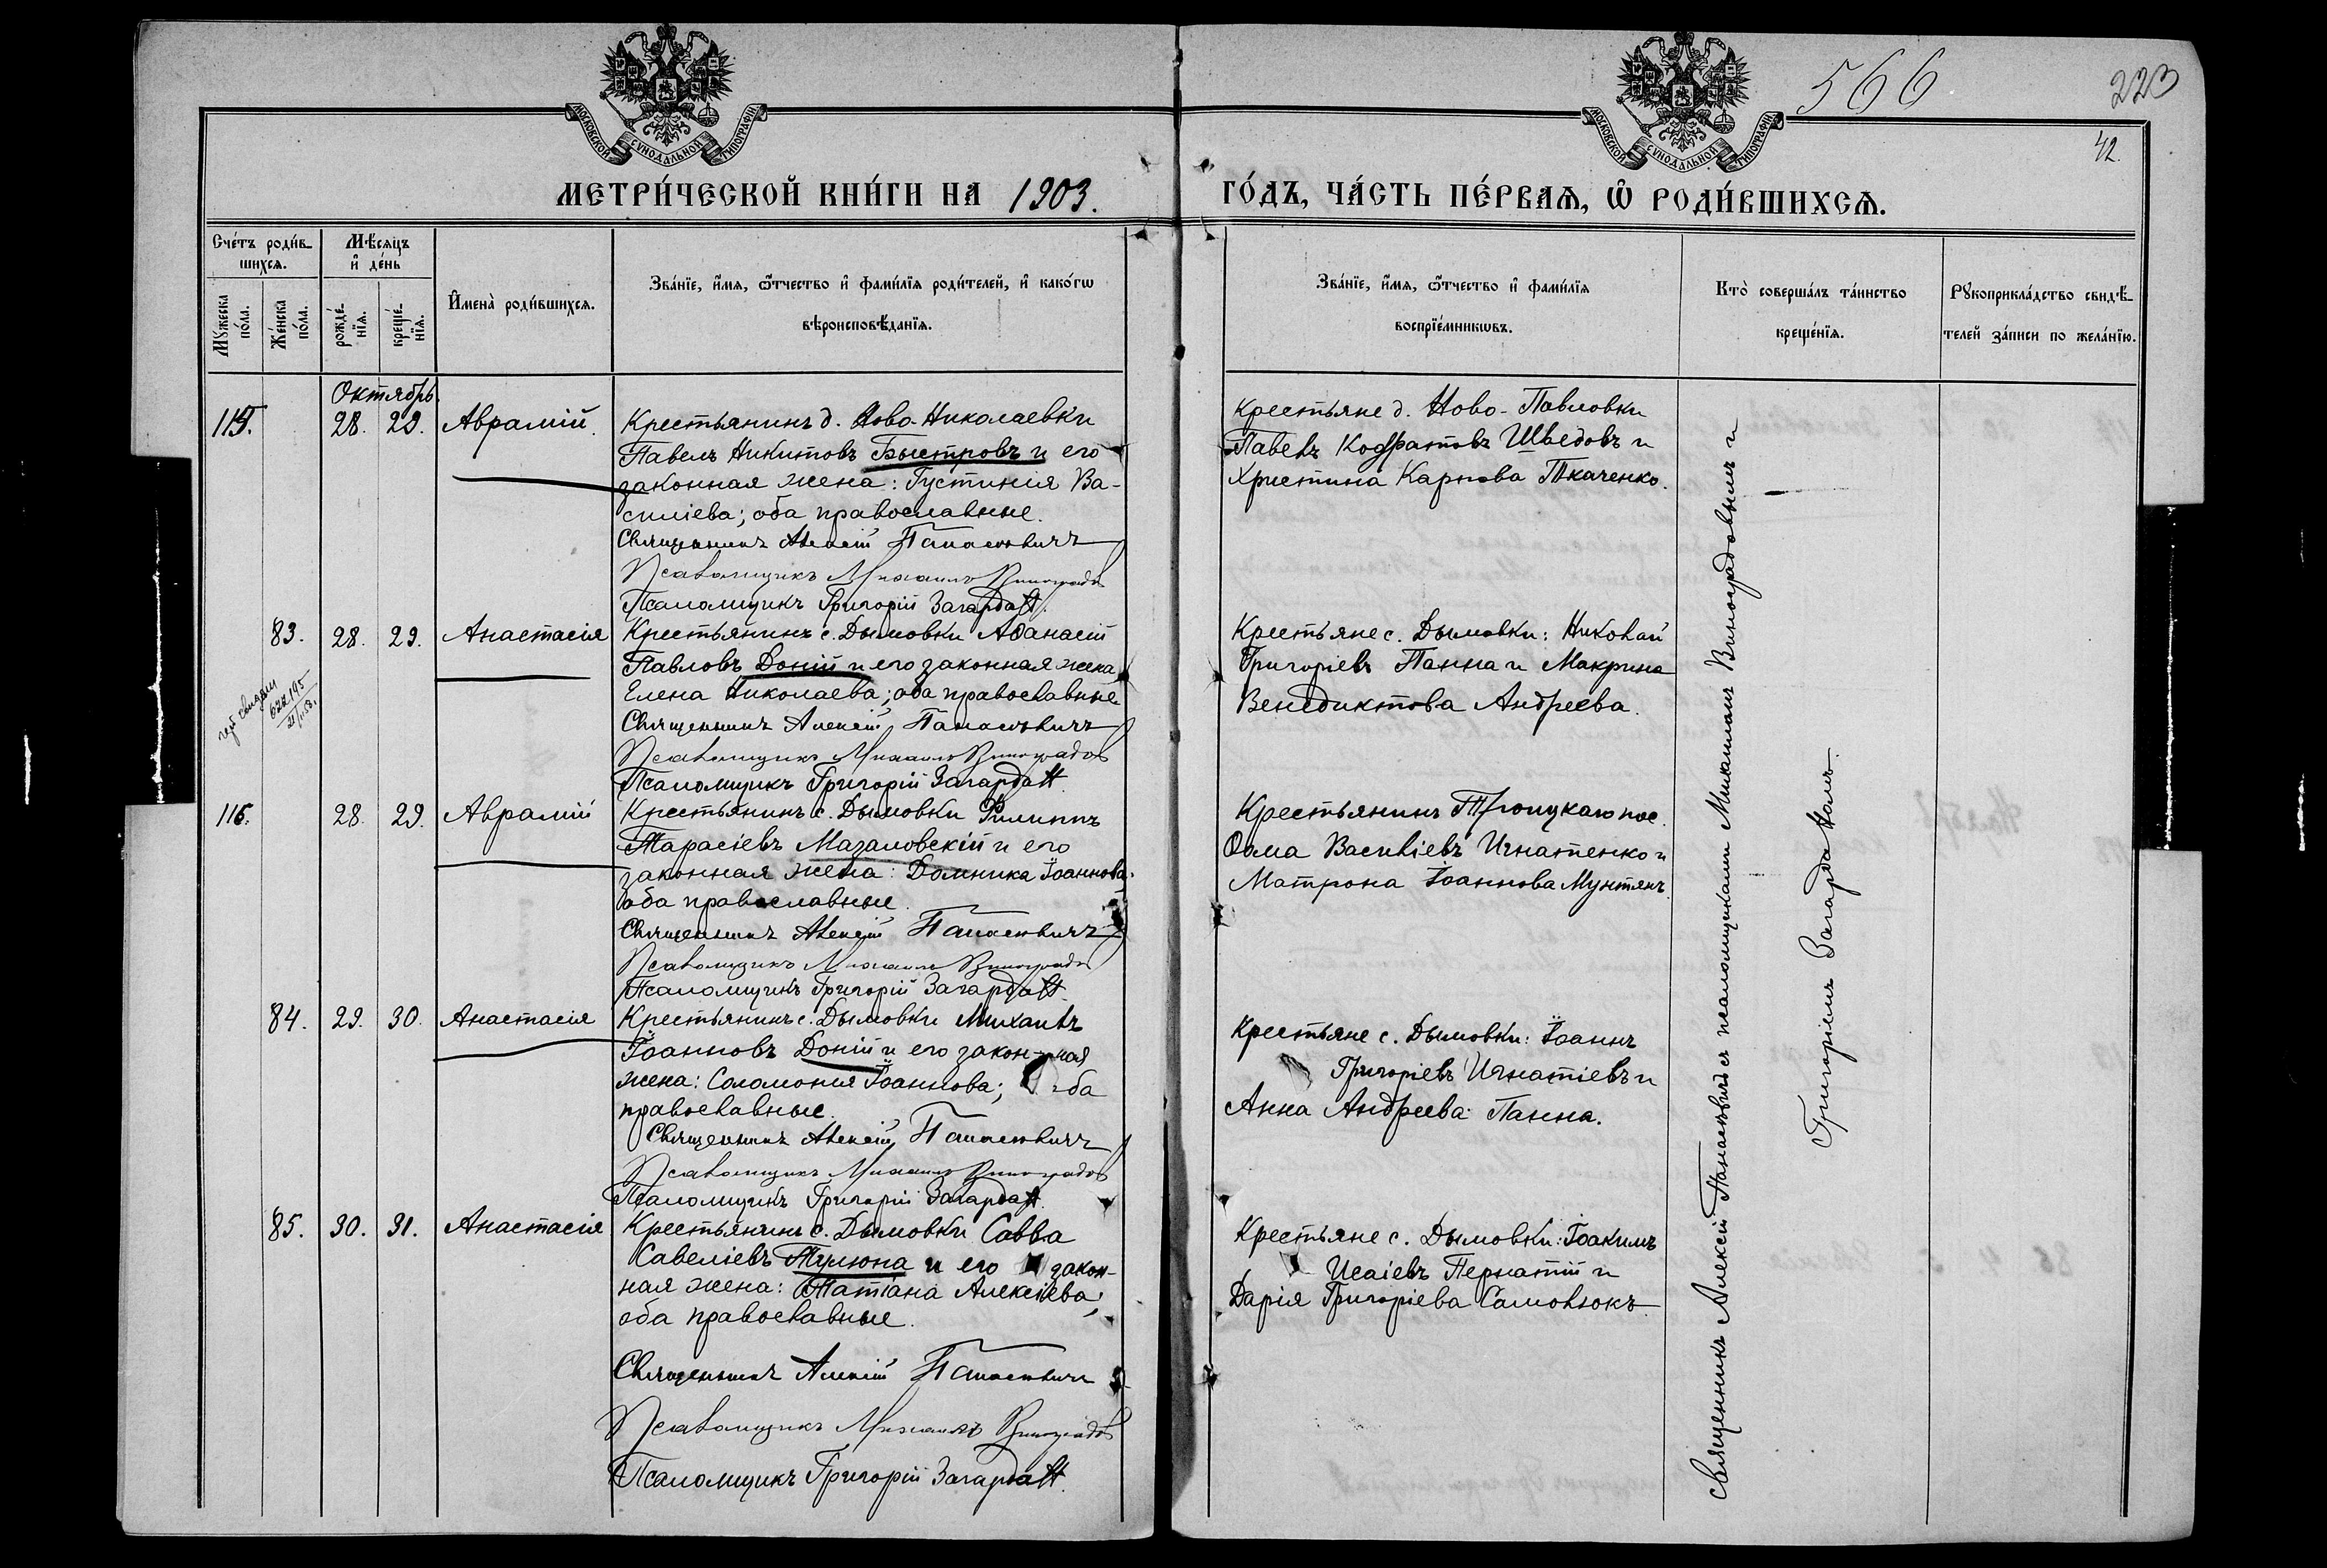 566
223
42.
МОСКОВСКОЙ СУНОДАЛЬНОЙ ТИПОГРАФІИ
МОСКОВСКОЙ СУНОДАЛЬНОЙ ТИПОГРАФІИ
МЕТРИ́ЧЕСКОЙ КНИ́ГИ НА 1903.
ГО́ДЪ, ЧА́СТЬ ПЕ́РВАѦ, Ѡ РОДИ́ВШИХСѦ.
Сче́тъ роди́в-
шихсѧ.
Мꙋ́жеска по́ла.
Же́нска по́ла.
Мѣ́сѧцъ
и҆ де́нь
рожде́-
нїѧ.
креще́-
нїѧ.
И҆мена̀ роди́вшихсѧ.
Зва́нїе, и҆́мѧ, ѻ҆́тчество и҆ фами́лїѧ роди́телей, и҆ како́гѡ
вѣроисповѣ́данїѧ.
Зва́нїе, и҆́мѧ, ѻ҆́тчество и҆ фами́лїѧ
воспрїе́мникѡвъ.
Кто̀ соверша́лъ та́инство
креще́нїѧ.
Рꙋкоприкла́дство свидѣ́-
телей за́писи по жела́нїю.
Октябрь.
115. 28. 29. Аврамій.
Крестьянинъ д. Ново-Николаевки
Павелъ Никитовъ Быстровъ и его
законная жена: Густинія Ва-
силіева; оба православные.
Священникъ Алексій Панасевичъ
Псаломщикъ Михаилъ Виноградовъ
Псаломщикъ Григорій Загарда
Крестьяне д. Ново-Павловки
Павелъ Кодратовъ Шведовъ и
Христина Карпова Ткаченко.
83. 28. 29. Анастасія
Крестьянинъ с. Дымовки Аѳанасій
Павловъ Доній и его законная жена
Елена Николаева; оба православные
Священникъ Алексій Панасевичъ
Псаломщикъ Михаилъ Виноградовъ
Псаломщикъ Григорій Загарда
Крестьяне с. Дымовки: Николай
Григоріевъ Панна и Макрина
Венедиктова Андреева.
116. 28. 29. Аврамій
Крестьянинъ с. Дымовки Филиппъ
Тарасіевъ Мазаловскій и его
законная жена: Домника Іоаннова
оба православные.
Священникъ Алексій Панасевичъ
Псаломщикъ Михаилъ Виноградовъ
Псаломщикъ Григорій Загарда
Крестьянинъ Троицкаго пос.
Ѳома Василіевъ Игнатенко и
Матрона Іоаннова Мунтянъ.
84. 29. 30. Анастасія
Крестьянинъ с. Дымовки Михаилъ
Іоанновъ Доній и его законная
жена: Соломонія Іоаннова; оба
православные.
Священникъ Алексій Панасевичъ
Псаломщикъ Михаилъ Виноградовъ
Псаломщикъ Григорій Загарда
Крестьяне с. Дымовки: Іоаннъ
Григоріевъ Игнатіевъ и
Анна Андреева Панна.
85. 30. 31. Анастасія
Крестьянинъ с. Дымовки Савва
Савеліевъ Тулюпа и его закон-
ная жена: Татіана Алексіева;
оба православные.
Священникъ Алексій Панасевичъ
Псаломщикъ Михаилъ Виноградовъ
Псаломщикъ Григорій Загарда
Крестьяне с. Дымовки: Іоакимъ
Исаіевъ Пернатій и
Дарія Григоріева Самолюкъ
Священникъ Алексій Панасевичъ съ псаломщиками Михаиломъ Виноградовымъ и
Григоріемъ Загарда